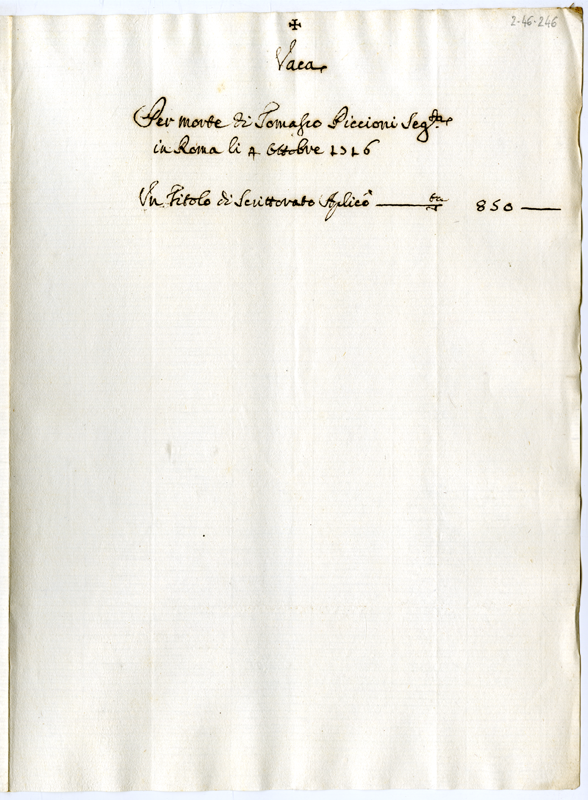 2-46-246
✠
Vaca
Per morte di Tomasso Piccioni Seg.ta
in Roma li 4 Ottobre 1716
Un Titolo di Scrittorato Aplico 850